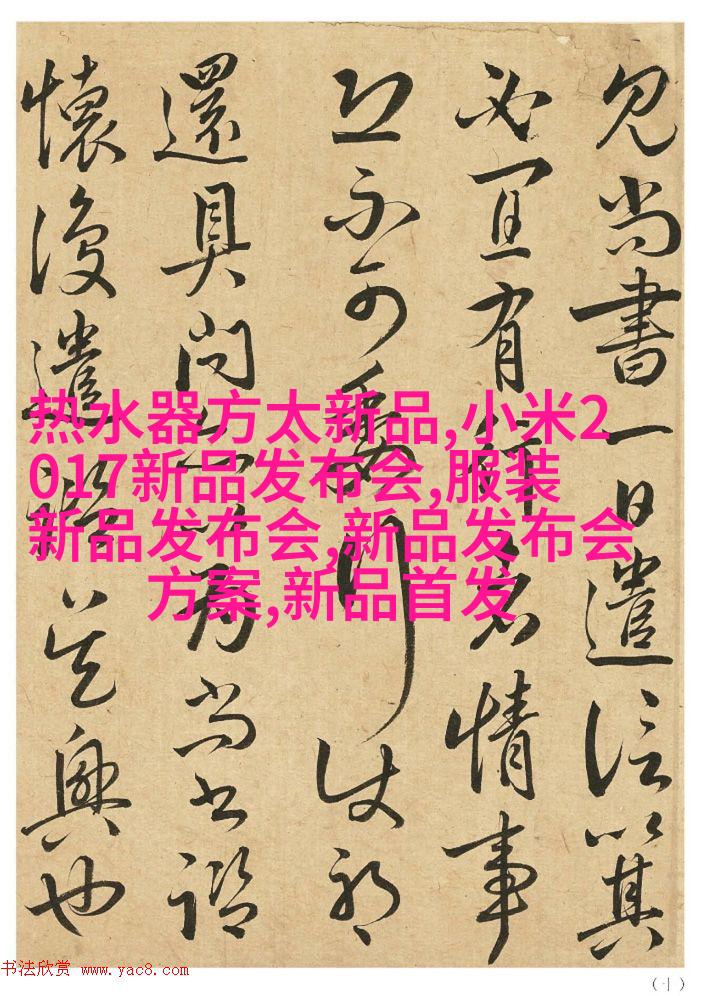 見尚書一日遣信以其
必宜有名情事
不可
還具問尚書諮
懷復遣興也
热水器方太新品,小米2
017新品发布会,服装
新品发布会,新品发布会
方案,新品首发
书法欣赏 www.yac8.com